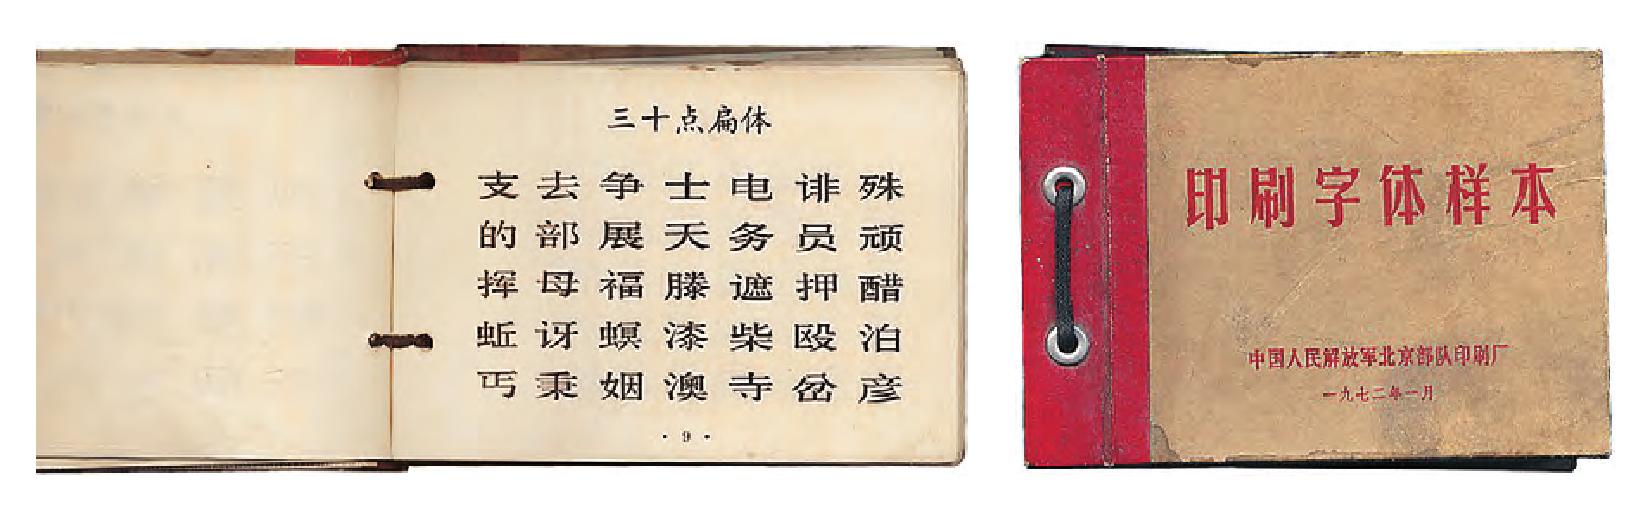 三十点扁体
支去争士电诽殊
的部展天务员顽
挥母福滕遮押醋
蚯讶螟漆柴殴泊
丐秉姻澳寺岔彦
·9·
印刷字体样本
中国人民解放军北京部队印刷厂
一九七二年一月